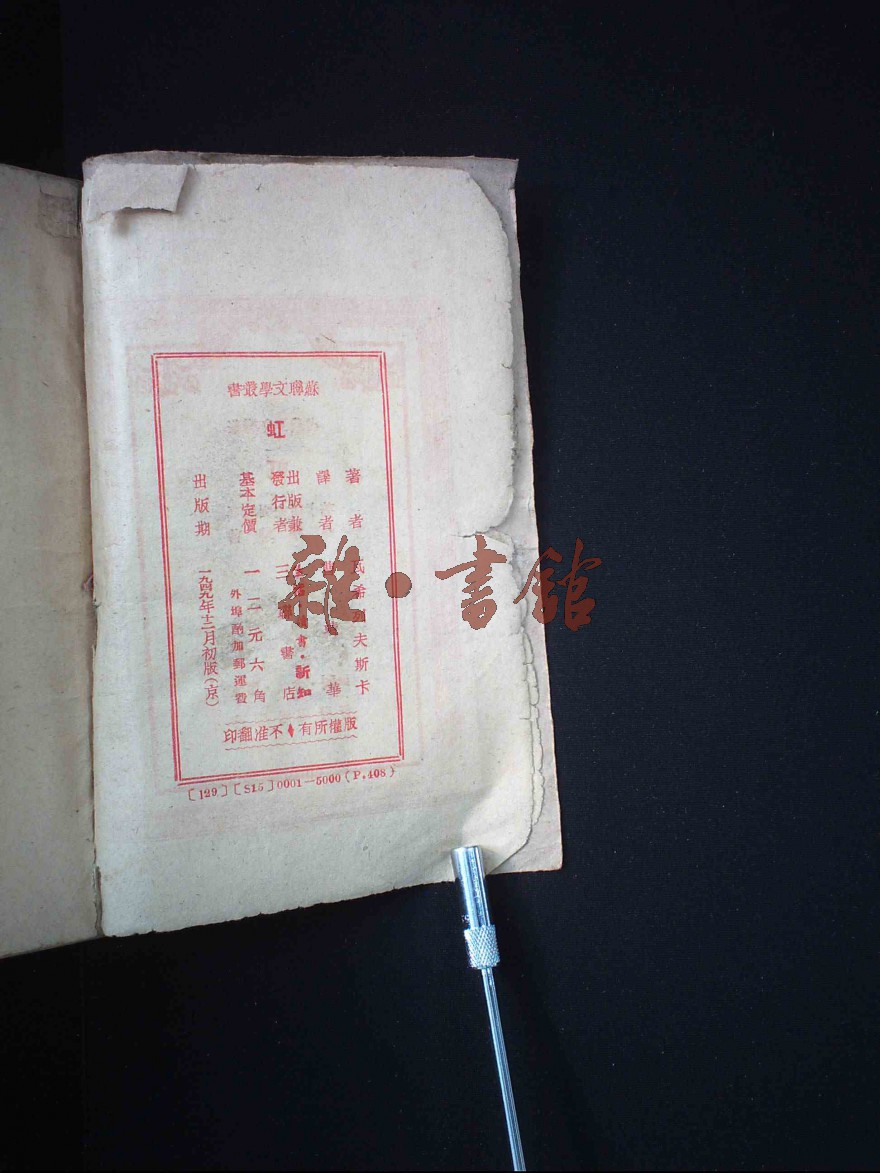 蘇聯文學叢書
虹
著者 瓦希列夫斯卡
譯者 曹靖華
出版兼發行者 生活・讀書・新知三聯書店
基本定價 一二元六角
外埠酌加郵運費
出版期 一九四九年十二月初版(京)
版權所有♦不准翻印
[129][S15]0001—5000(P.408)
雜・書館